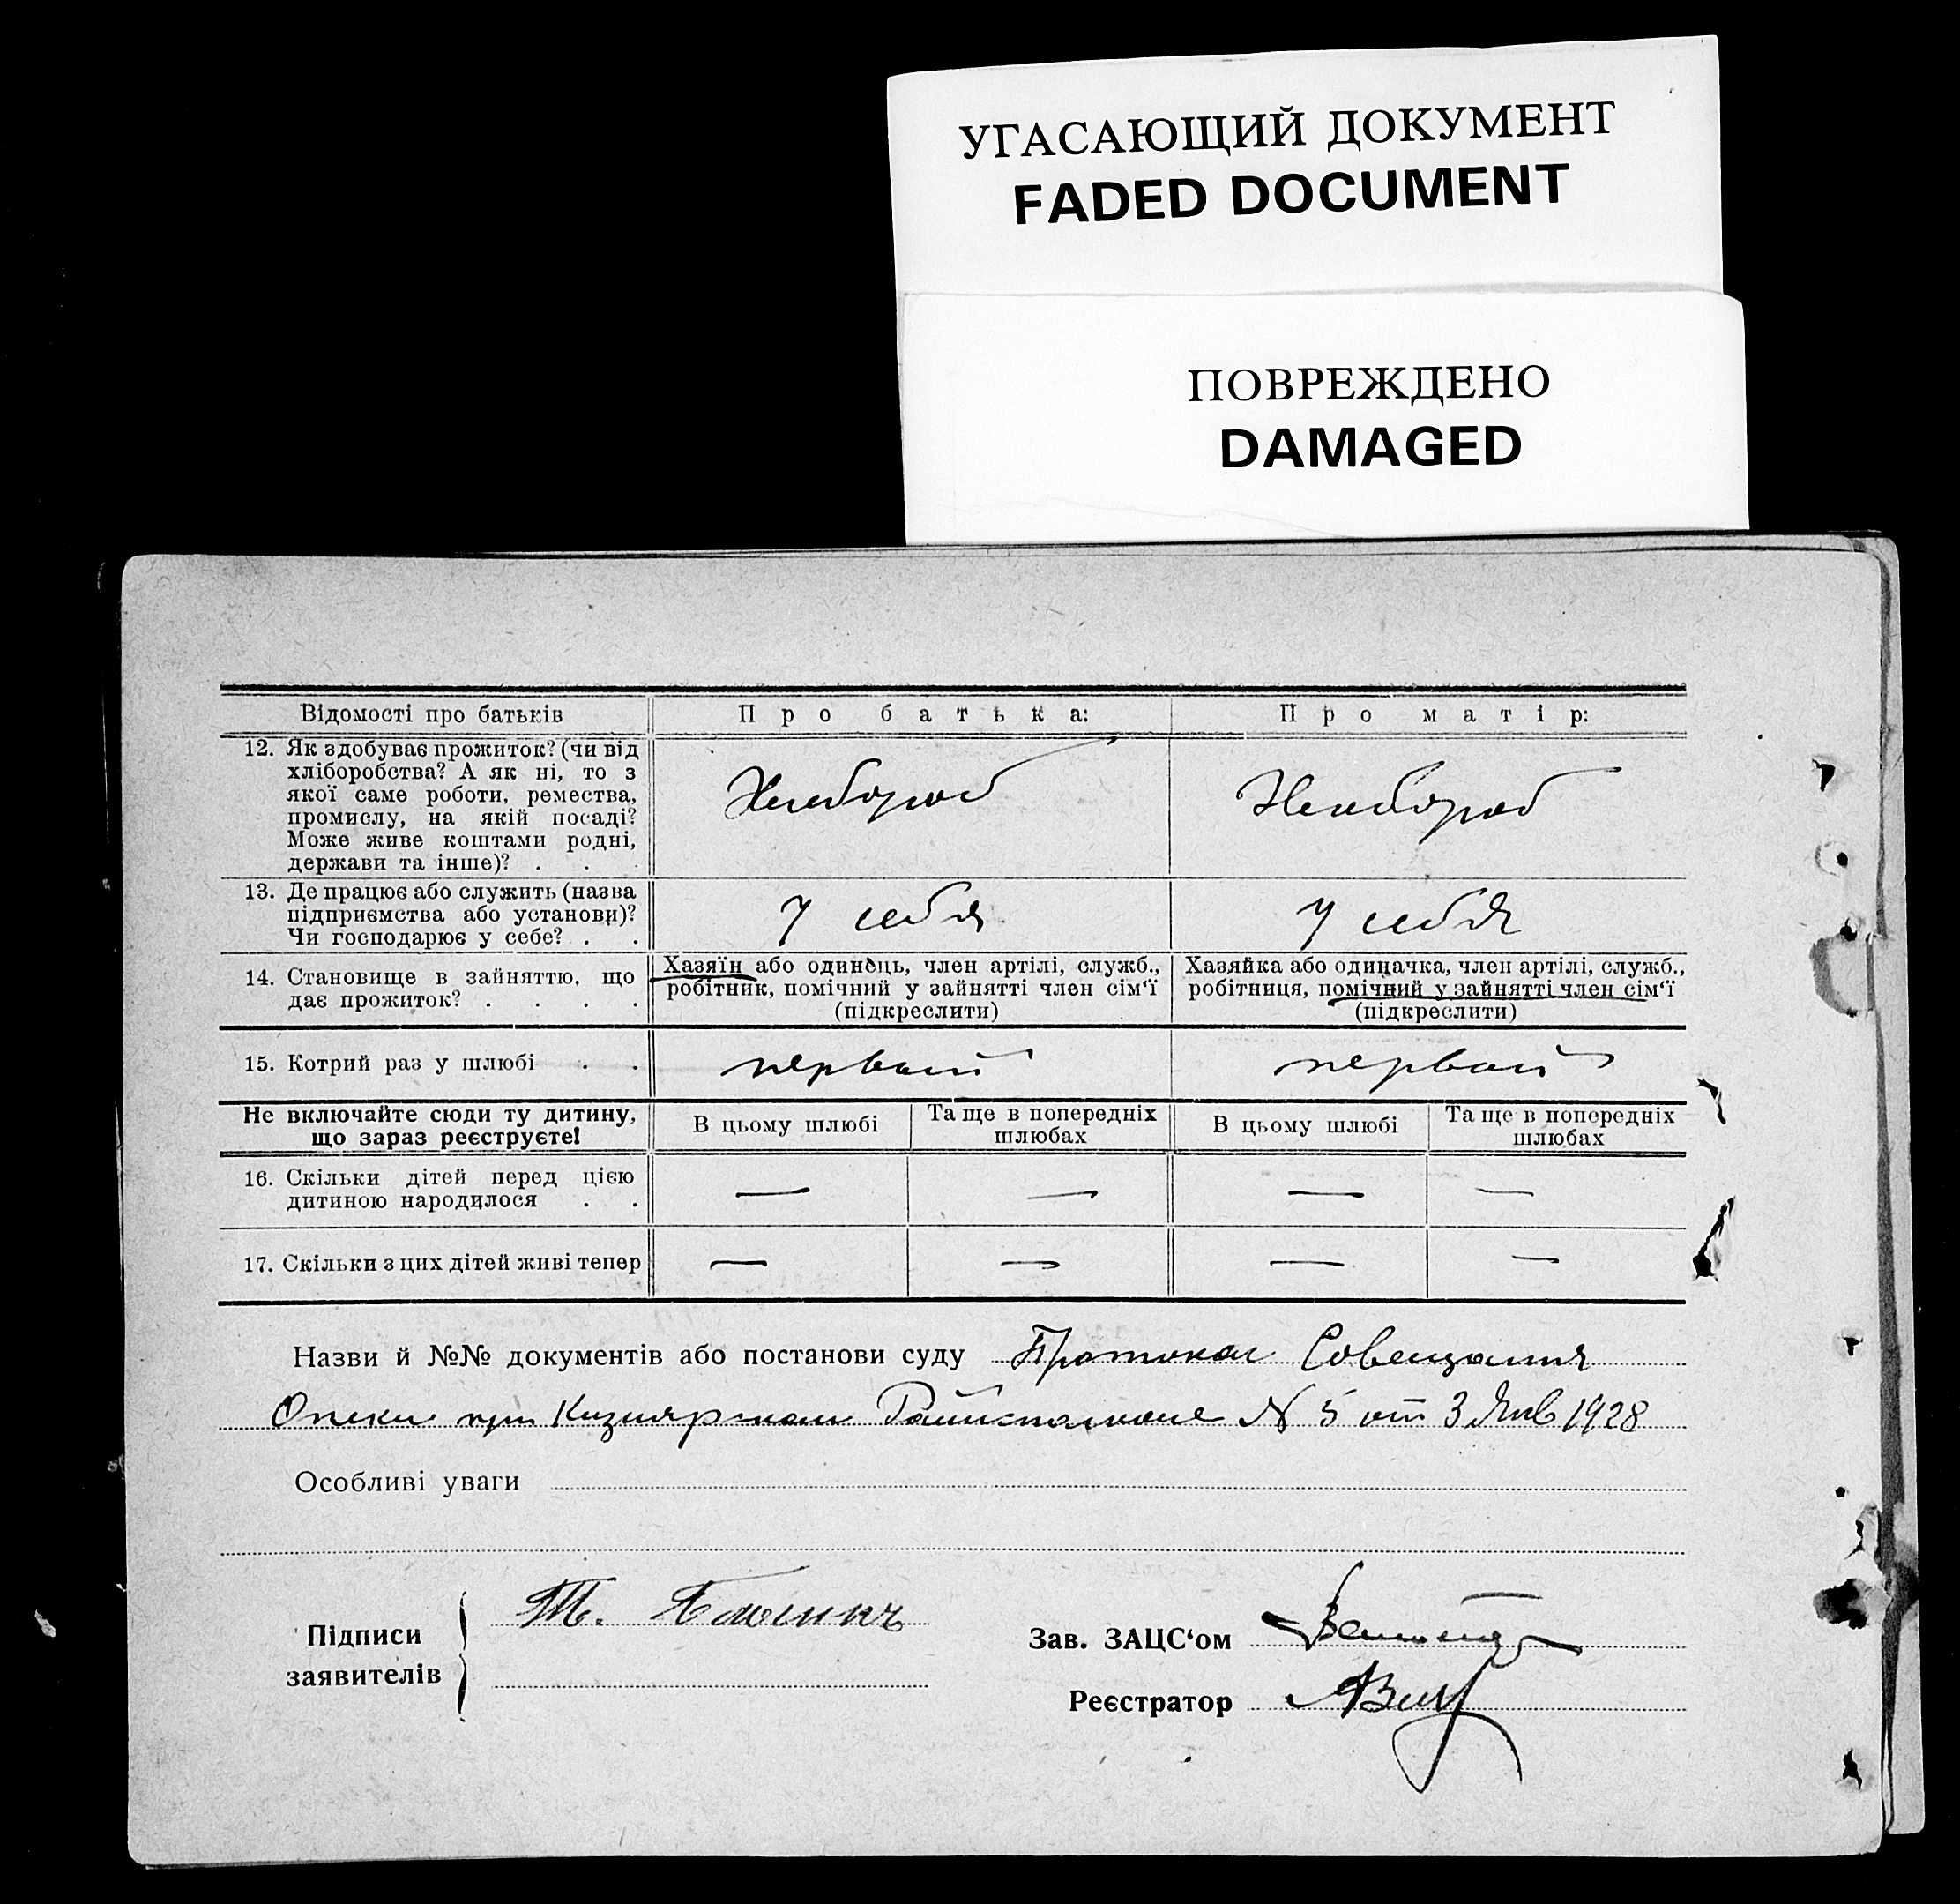 УГАСАЮЩИЙ ДОКУМЕНТ
FADED DOCUMENT
ПОВРЕЖДЕНО
DAMAGED
Відомості про батьків
Про батька:
Про матір:
12. Як здобуває прожиток? (чи від
хліборобства? А як ні, то з
якої саме роботи, ремества,
промислу, на якій посаді?
Може живе коштами родні,
держави та інше)? . . .
Хлебороб
Хлебороб
13. Де працює або служить (назва
підприємства або установи)?
Чи господарює у себе? . .
У себя
У себя
14. Становище в зайняттю, що
дає прожиток? . . . .
Хазяїн або одинець, член артілі, служб.,
робітник, помічний у зайнятті член сім‘ї
(підкреслити)
Хазяйка або одиначка, член артілі, служб.,
робітниця, помічний у зайнятті член сім‘ї
(підкреслити)
15. Котрий раз у шлюбі . .
первый
первый
Не включайте сюди ту дитину,
що зараз реєструєте!
В цьому шлюбі
Та ще в попередніх
шлюбах
В цьому шлюбі
Та ще в попередніх
шлюбах
16. Скільки дітей перед цією
дитиною народилося . .
—
—
—
—
17. Скільки з цих дітей живі тепер
—
—
—
—
Назви й №№ документів або постанови суду Протокол Совещания
Опеки при Райисполкоме N 5 от 3 Янв 1928
Особливі уваги
Підписи
заявителів
Т.
Зав. ЗАЦС‘ом
Реєстратор